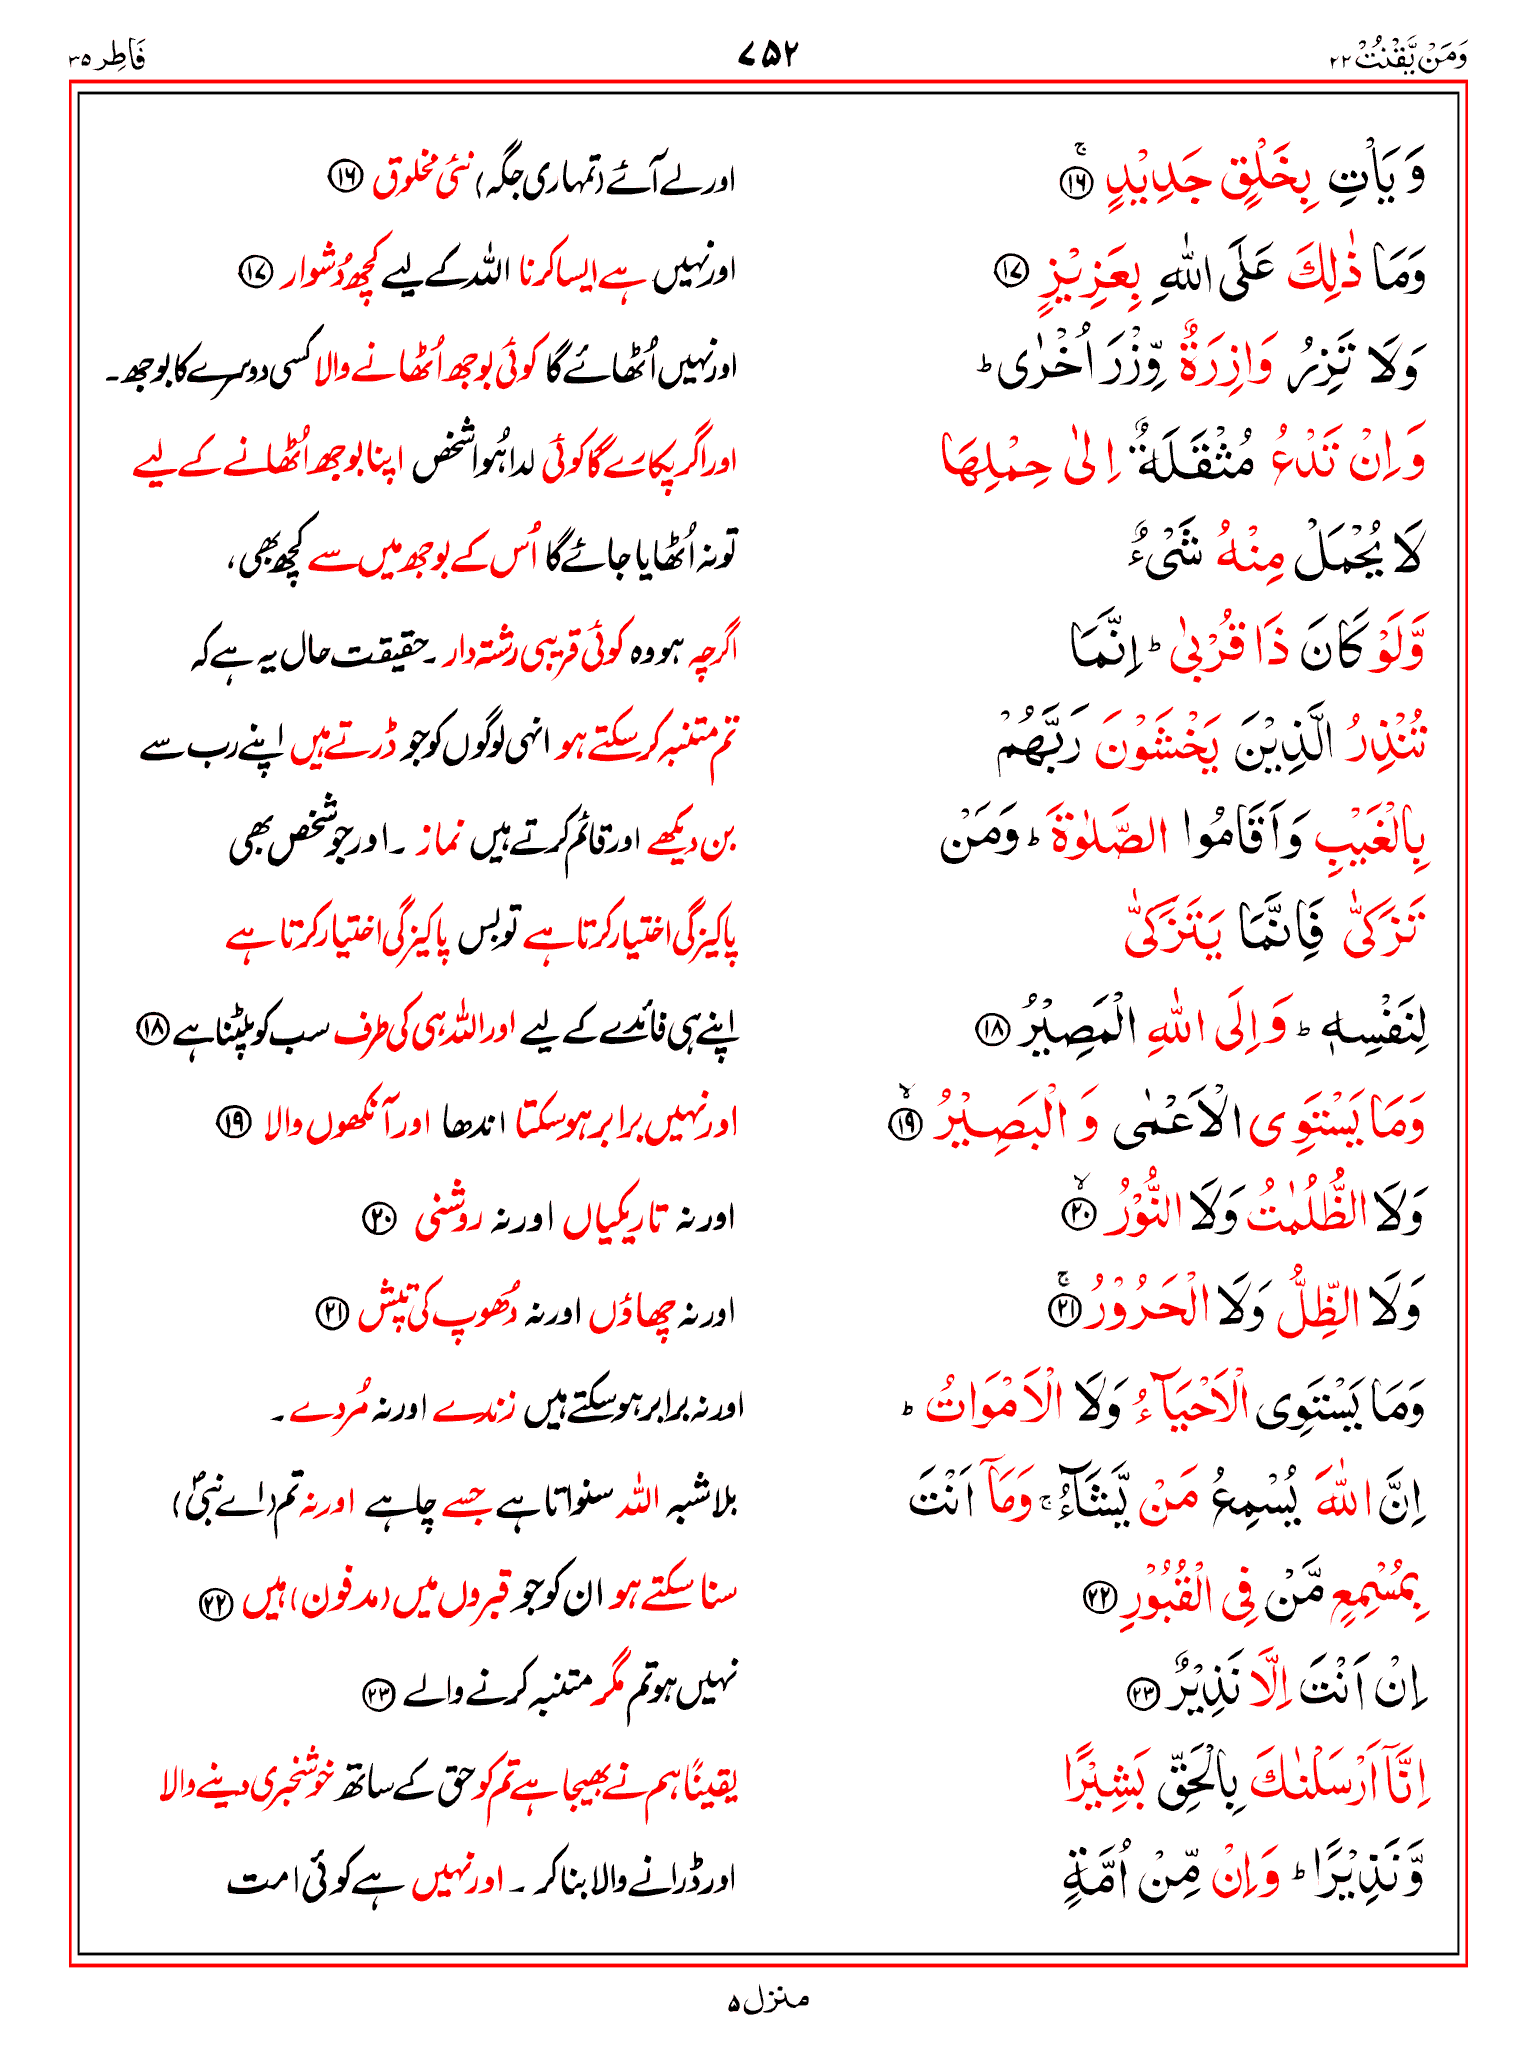 وَمَنْ يَّقْنُتْ ٢٢ ٧٥٢ فَاطِر ٣٥
وَ يَاْتِ بِخَلْقٍ جَدِيْدٍ ۚ ﴿١٦﴾ اور لے آئے (تمہاری جگہ) نئی مخلوق ﴿١٦﴾
وَمَا ذٰلِكَ عَلَى اللّٰهِ بِعَزِيْزٍ ﴿١٧﴾ اور نہیں ہے ایسا کرنا اللہ کے لیے کچھ دُشوار ﴿١٧﴾
وَلَا تَزِرُ وَازِرَةٌ وِّزْرَ اُخْرٰى ؕ اور نہیں اُٹھائے گا کوئی بوجھ اُٹھانے والا کسی دوسرے کا بوجھ۔
وَ اِنْ تَدْعُ مُثْقَلَةٌ اِلٰى حِمْلِهَا اور اگر پکارے گا کوئی لدا ہُوا شخص اپنا بوجھ اُٹھانے کے لیے
لَا يُحْمَلْ مِنْهُ شَىْءٌ تو نہ اُٹھایا جائے گا اُس کے بوجھ میں سے کچھ بھی،
وَّلَوْ كَانَ ذَا قُرْبٰى ؕ اِنَّمَا اگرچہ ہو وہ کوئی قریبی رشتہ دار ۔ حقیقت حال یہ ہے کہ
تُنْذِرُ الَّذِيْنَ يَخْشَوْنَ رَبَّهُمْ تم متنبہ کر سکتے ہو انہی لوگوں کو جو ڈرتے ہیں اپنے رب سے
بِالْغَيْبِ وَ اَقَامُوا الصَّلٰوةَ ؕ وَمَنْ بن دیکھے اور قائم کرتے ہیں نماز ۔ اور جو شخص بھی
تَزَكّٰى فَاِنَّمَا يَتَزَكّٰى پاکیزگی اختیار کرتا ہے تو بس پاکیزگی اختیار کرتا ہے
لِنَفْسِهٖ ؕ وَ اِلَى اللّٰهِ الْمَصِيْرُ ﴿١٨﴾ اپنے ہی فائدے کے لیے اور اللہ ہی کی طرف سب کو پلٹنا ہے ﴿١٨﴾
وَمَا يَسْتَوِى الْاَعْمٰى وَ الْبَصِيْرُ ۙ ﴿١٩﴾ اور نہیں برابر ہو سکتا اندھا اور آنکھوں والا ﴿١٩﴾
وَلَا الظُّلُمٰتُ وَلَا النُّوْرُ ۙ ﴿٢٠﴾ اور نہ تاریکیاں اور نہ روشنی ﴿٢٠﴾
وَلَا الظِّلُّ وَلَا الْحَرُوْرُ ۚ ﴿٢١﴾ اور نہ چھاؤں اور نہ دُھوپ کی تپش ﴿٢١﴾
وَمَا يَسْتَوِى الْاَحْيَآءُ وَلَا الْاَمْوَاتُ ؕ اور نہ برابر ہو سکتے ہیں زندے اور نہ مُردے ۔
اِنَّ اللّٰهَ يُسْمِعُ مَنْ يَّشَآءُ ۚ وَمَاۤ اَنْتَ بلاشبہ اللہ سنواتا ہے جسے چاہے اور نہ تم (اے نبیؐ)
بِمُسْمِعٍ مَّنْ فِى الْقُبُوْرِ ﴿٢٢﴾ سنا سکتے ہو ان کو جو قبروں میں (مدفون) ہیں ﴿٢٢﴾
اِنْ اَنْتَ اِلَّا نَذِيْرٌ ﴿٢٣﴾ نہیں ہو تم مگر متنبہ کرنے والے ﴿٢٣﴾
اِنَّاۤ اَرْسَلْنٰكَ بِالْحَقِّ بَشِيْرًا یقیناً ہم نے بھیجا ہے تم کو حق کے ساتھ خوشخبری دینے والا
وَّ نَذِيْرًا ؕ وَاِنْ مِّنْ اُمَّةٍ اور ڈرانے والا بنا کر ۔ اور نہیں ہے کوئی امت
منزل ٥